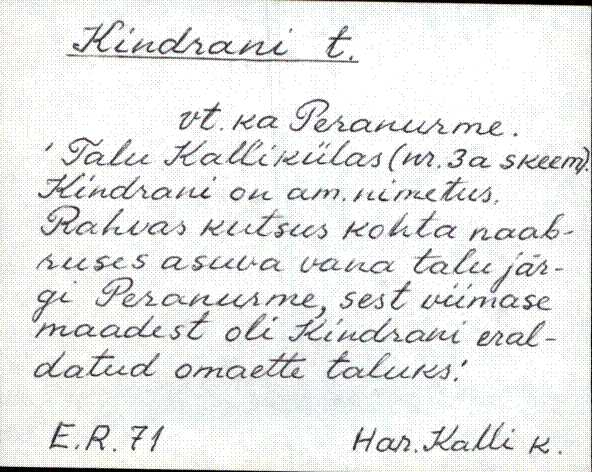 Kindrani t.
vt. ka Peranurme.
'Talu Kallikülas (nr. 3a skeem).
Kindrani on am. nimetus.
Rahvas kutsus kohta naab-
ruses asuva vana talu jär-
gi Peranurme, sest viimase
maadest oli Kindrani eral-
datud omaette taluks.'
E.R. 71 Har. Kalli k.